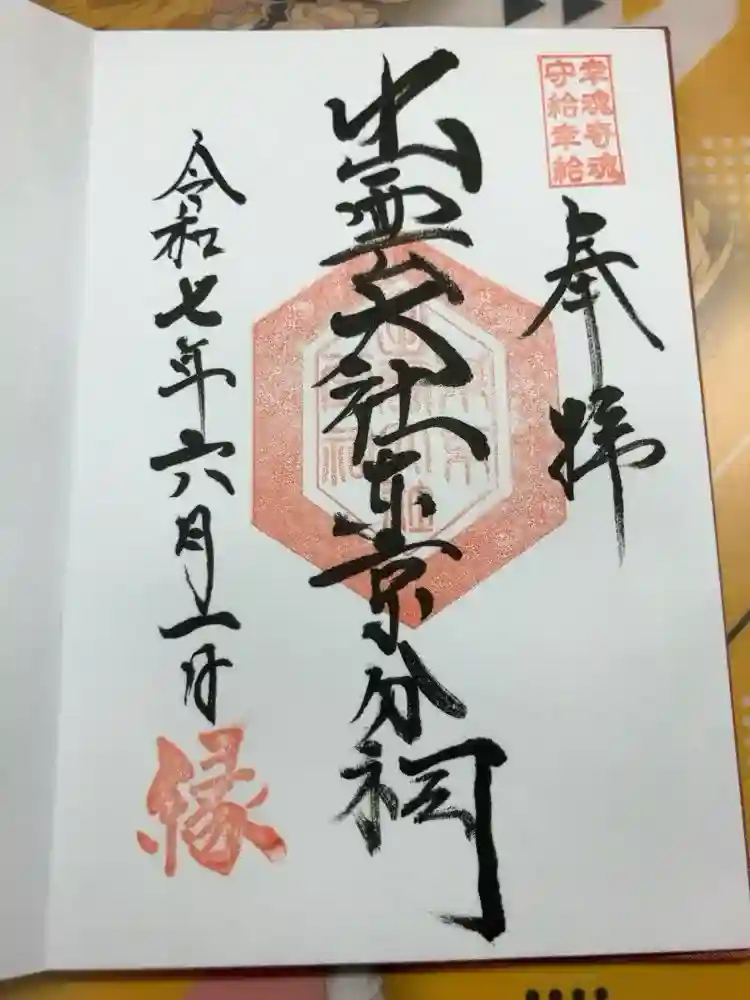 幸魂奇魂
守給幸給
奉拝
出雲大社東京分祠
令和七年六月一日
縁